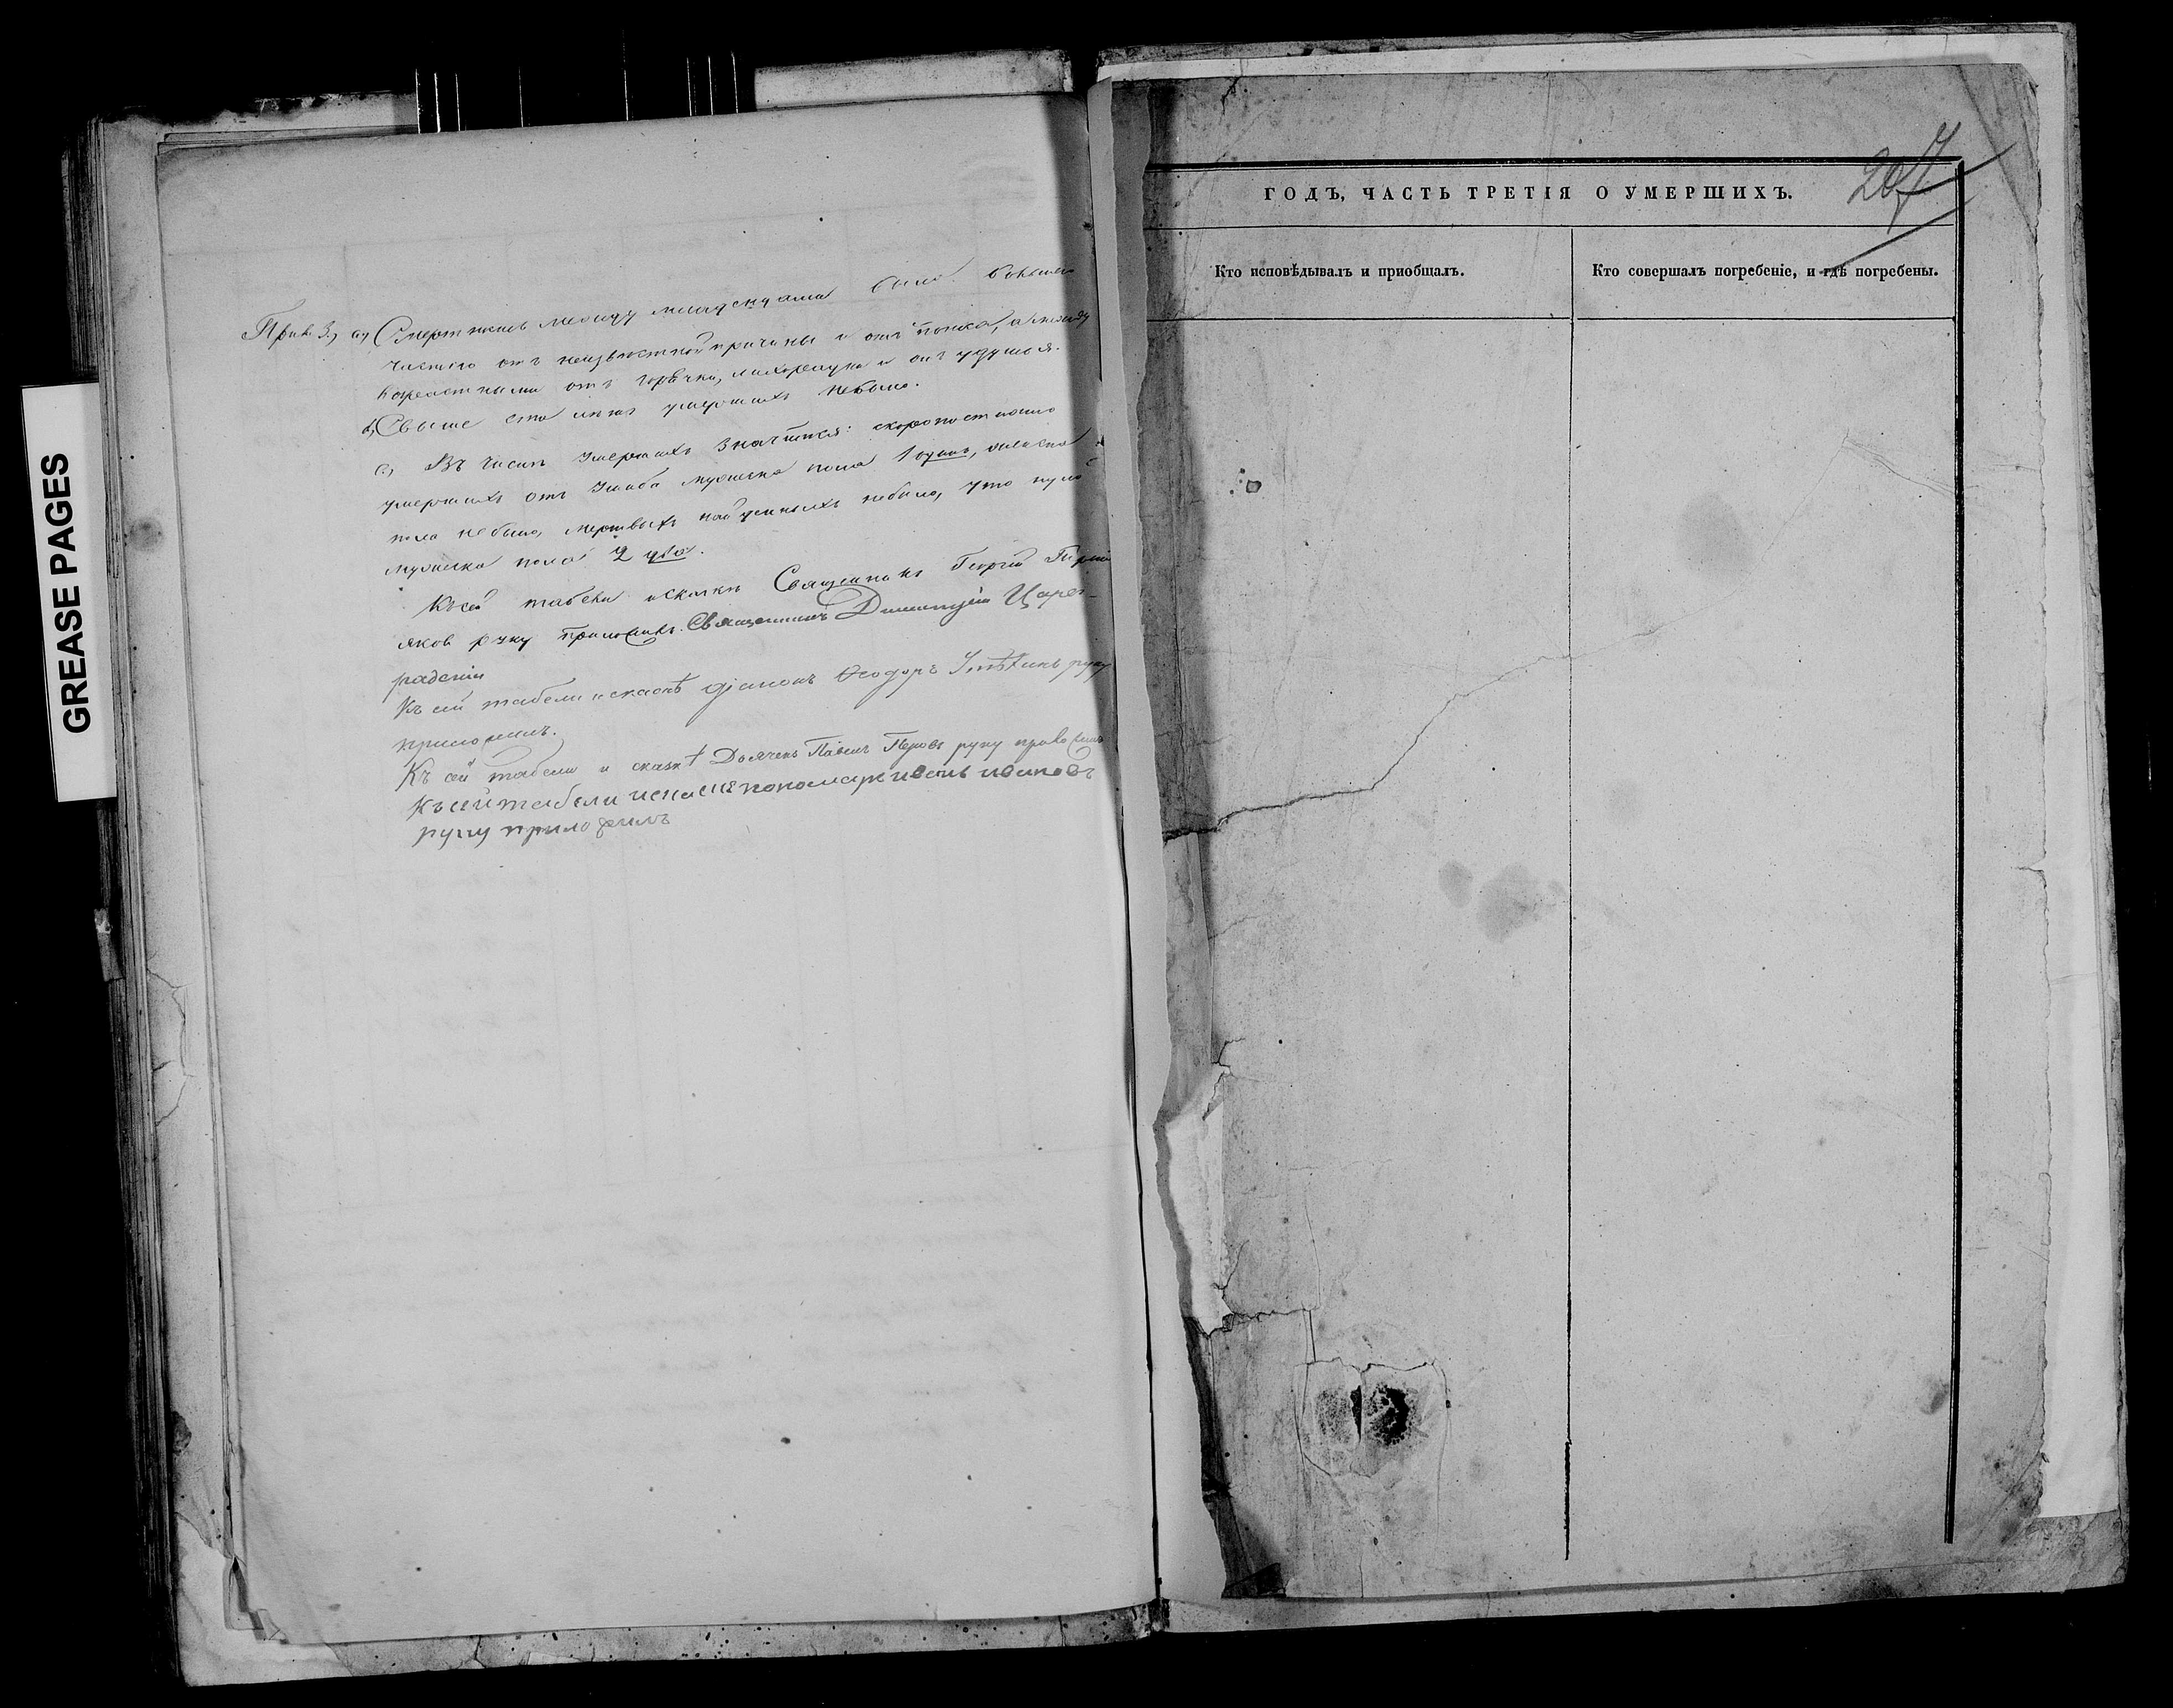 GREASE PAGES
Прим. 3, a, Смертность между младенцами была большею
частію отъ неизвѣстной причины и отъ поноса, а между
возрастными отъ горячки, лихорадки и отъ удушья.
b, Свыше ста лѣтъ умершихъ небыло.
c, Въ числѣ умершихъ значится: скоропостижно
умершихъ отъ мужеска пола 1 одинъ, женска
пола небыло, мертвыхъ найденныхъ небыло,
мужеска пола 2 два.
Къ сей табели и сказкѣ Священникъ Георгій
руку приложилъ. Священникъ Димитрій Царег-
радскій
Къ сей табели и сказкѣ діаконъ Ѳеодоръ руку
приложилъ.
Къ сей табели и сказкѣ Дьячекъ Павелъ Перовъ руку приложилъ
Къ сей табели и скаске пономарь иванъ ивановъ
руку приложилъ
207
ГОДЪ, ЧАСТЬ ТРЕТІЯ О УМЕРШИХЪ.
Кто исповѣдывалъ и пріобщалъ.
Кто совершалъ погребеніе, и гдѣ погребены.